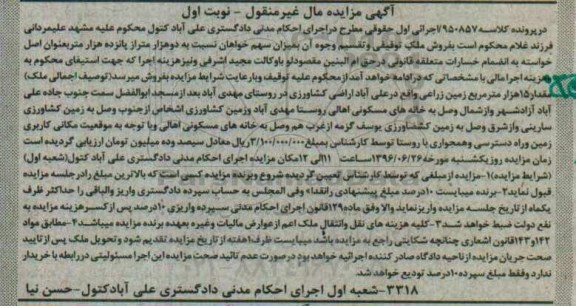 آگهی مزایده مال غیرمنقول - نوبت اول
در پرونده کلاسه ۹۵۰۸۵۷/اجرائی اول حقوقی مطرح در اجرای احکام مدنی دادگستری علی آباد کتول محکوم علیه مشهد علیمردانی
فرزند غلام محکوم است بفروش ملک توقیفی و تقسیم وجوه آن بمیزان سهم خواهان نسبت به دوهزار متر از پانزده هزار متر بعنوان اصل
خواسته به انضمام خسارات متعلقه قانونی در حق ام البنین مقصودلو باوکالت مجید اشرفی ونیز هزینه اجرا که جهت استیفای محکوم به
هزینه اجرا مالی با مشخصاتی که در ادامه خواهد آمد از محکوم علیه توقیف و با رعایت شرایط مزایده بفروش میرسد(توصیف اجمالی ملک)
مقدار ۱۵هزار مترمربع زمین زراعی واقع در علی آباد اراضی کشاورزی در روستای مهدی آباد بعد از مسجد ابوالفضل سمت جنوب جاده علی
آباد آزادشهر واز شمال وصل به خانه های مسکونی اهالی روستا مهدی آباد وزمین کشاورزی اشخاص از جنوب وصل به زمین کشاورزی
سارینی واز شرق وصل به زمین کشاورزی یوسف گزمه از غرب هم وصل به خانه های مسکونی اهالی وبا توجه به موقعیت مکانی کاربری
زمین وراه دسترسی وهمجواری با روستا توسط کارشناس بمبلغ ۳/۱۰۰/۰۰۰/۰۰۰ریال معادل سیصد وده میلیون تومان ارزیابی گردیده است
زمان مزایده روز یکشنبه مورخه ۱۳۹۶/۰۶/۲۶ ساعت ۱۱الی ۱۲مکان مزایده اجرای احکام مدنی دادگستری علی آباد کتول(شعبه اول)
(شرایط مزایده)۱-مزایده از مبلغی که توسط کارشناس تعیین گردیده شروع وبرنده مزایده کسی است که بالاترین مبلغ را در جلسه مزایده
قبول نماید۲-برنده میبایست ۱۰درصد مبلغ پیشنهادی را نقدا" وفی المجلس به حساب سپرده دادگستری واریز والباقی را حداکثر ظرف
یکماه از تاریخ جلسه مزایده واریز نماید والا وفق ماده۱۲۹قانون اجرای احکام مدنی سپرده واریزی ۱۰درصد پس از کسر هزینه مزایده به
نفع دولت ضبط خواهد شد۳-کلیه هزینه های نقل وانتقال ملک اعم از عوارض مالیات وغیره بعهده برنده مزایده میباشد۴-مطابق مواد
۱۴۲و۱۴۳قانون اشعاری چنانچه شکایتی راجع به مزایده باشد میبایست ظرف۱هفته از تاریخ مزایده تقدیم شود و تحویل ملک پس از تایید
صحت جریان مزایده از ناحیه دادگاه صادر کننده اجرائیه خواهد بود در صورت عدم تائید صحت مزایده این اجرا مسئولیتی در رابطه با خریدار
ندارد وفقط مبلغ سپرده ۱۰درصد تودیع خواهد شد.
۳۳۱۸-شعبه اول اجرای احکام مدنی دادگستری علی آبادکتول-حسن نیا